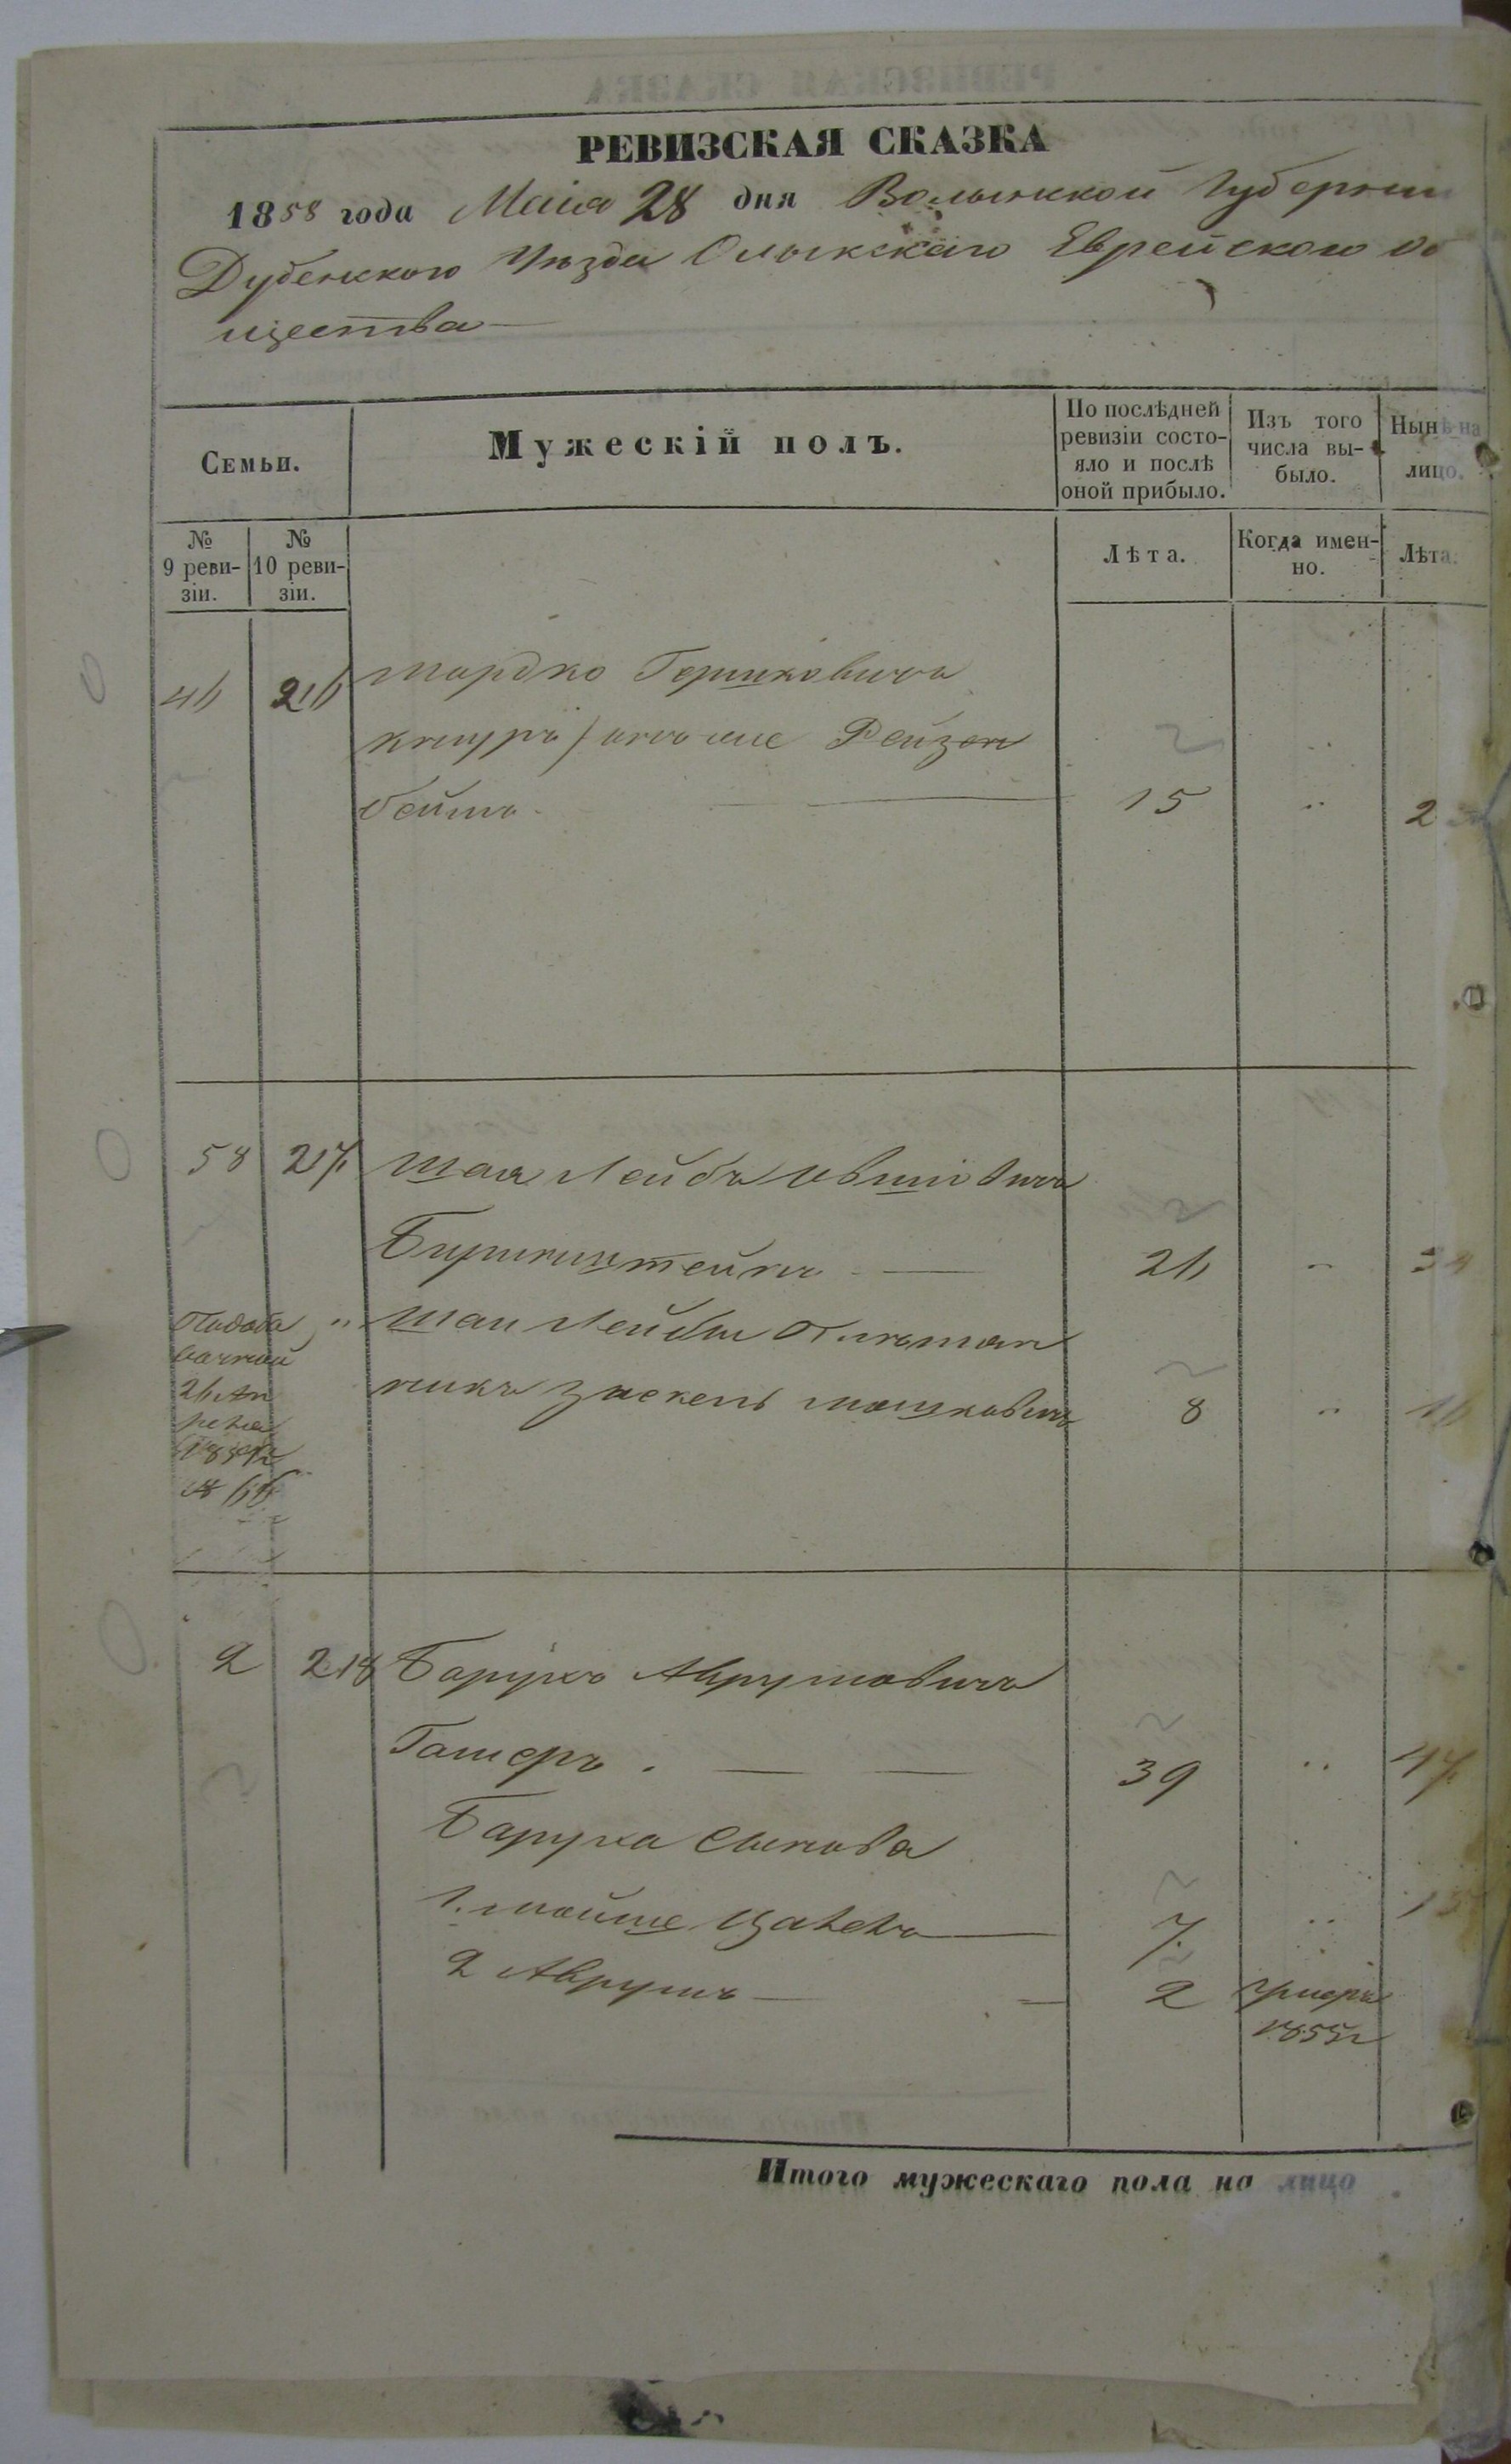 РЕВИЗСКАЯ СКАЗКА
1858 года Маія 28 дня Волынской Губерніи
Дубенского Уѣзда Олыкскаго Еврейского об
щества
Семьи.
Мужескій полъ.
По послѣдней ревизіи состо-
яло и послѣ
оной прибыло.
Изъ того
числа вы-
было.
Нынѣ на
лицо.
№
9 реви-
зіи.
№
10 реви-
зіи.
Лѣта.
Когда имен-
но.
Лѣта.
46 216 Мордко Гершковичъ
Рейзен
бейтъ 15 " 2
58 217 Шая Лейбъ Овшіовичъ
Биринштейнъ 26 " 34
Шаи Лейбы
никъ Зыскель Мошковичъ 8 " 16
2 218 Барухъ Аврумовичъ
Гошеръ 39 " 47
Баруха Сынова
1. Мойше Цалель 7. " 15
2 Аврумъ 2 умеръ
1855г
Итого мужескаго пола на лицо